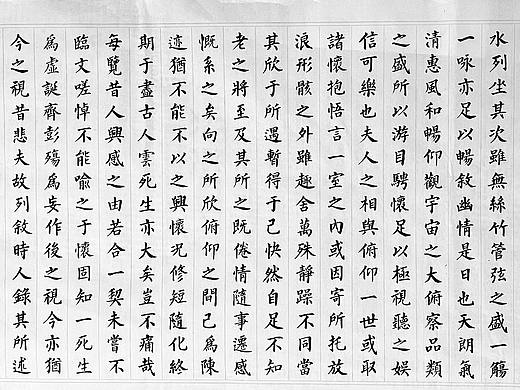 水列坐其次雖無絲竹管弦之盛一觴
一咏亦足以暢敘幽情是日也天朗氣
清惠風和暢仰觀宇宙之大俯察品類
之盛所以游目騁懷足以極視聽之娛
信可樂也夫人之相與俯仰一世或取
諸懷抱悟言一室之內或因寄所托放
浪形骸之外雖趣舍萬殊靜躁不同當
其欣于所遇暫得于己快然自足不知
老之將至及其所之既倦情隨事遷感
慨系之矣向之所欣俯仰之間已為陳
迹猶不能不以之興懷況修短隨化終
期于盡古人雲死生亦大矣豈不痛哉
每覽昔人興感之由若合一契未嘗不
臨文嗟悼不能喻之于懷固知一死生
為虛誕齊彭殤為妄作後之視今亦猶
今之視昔悲夫故列敘時人錄其所述